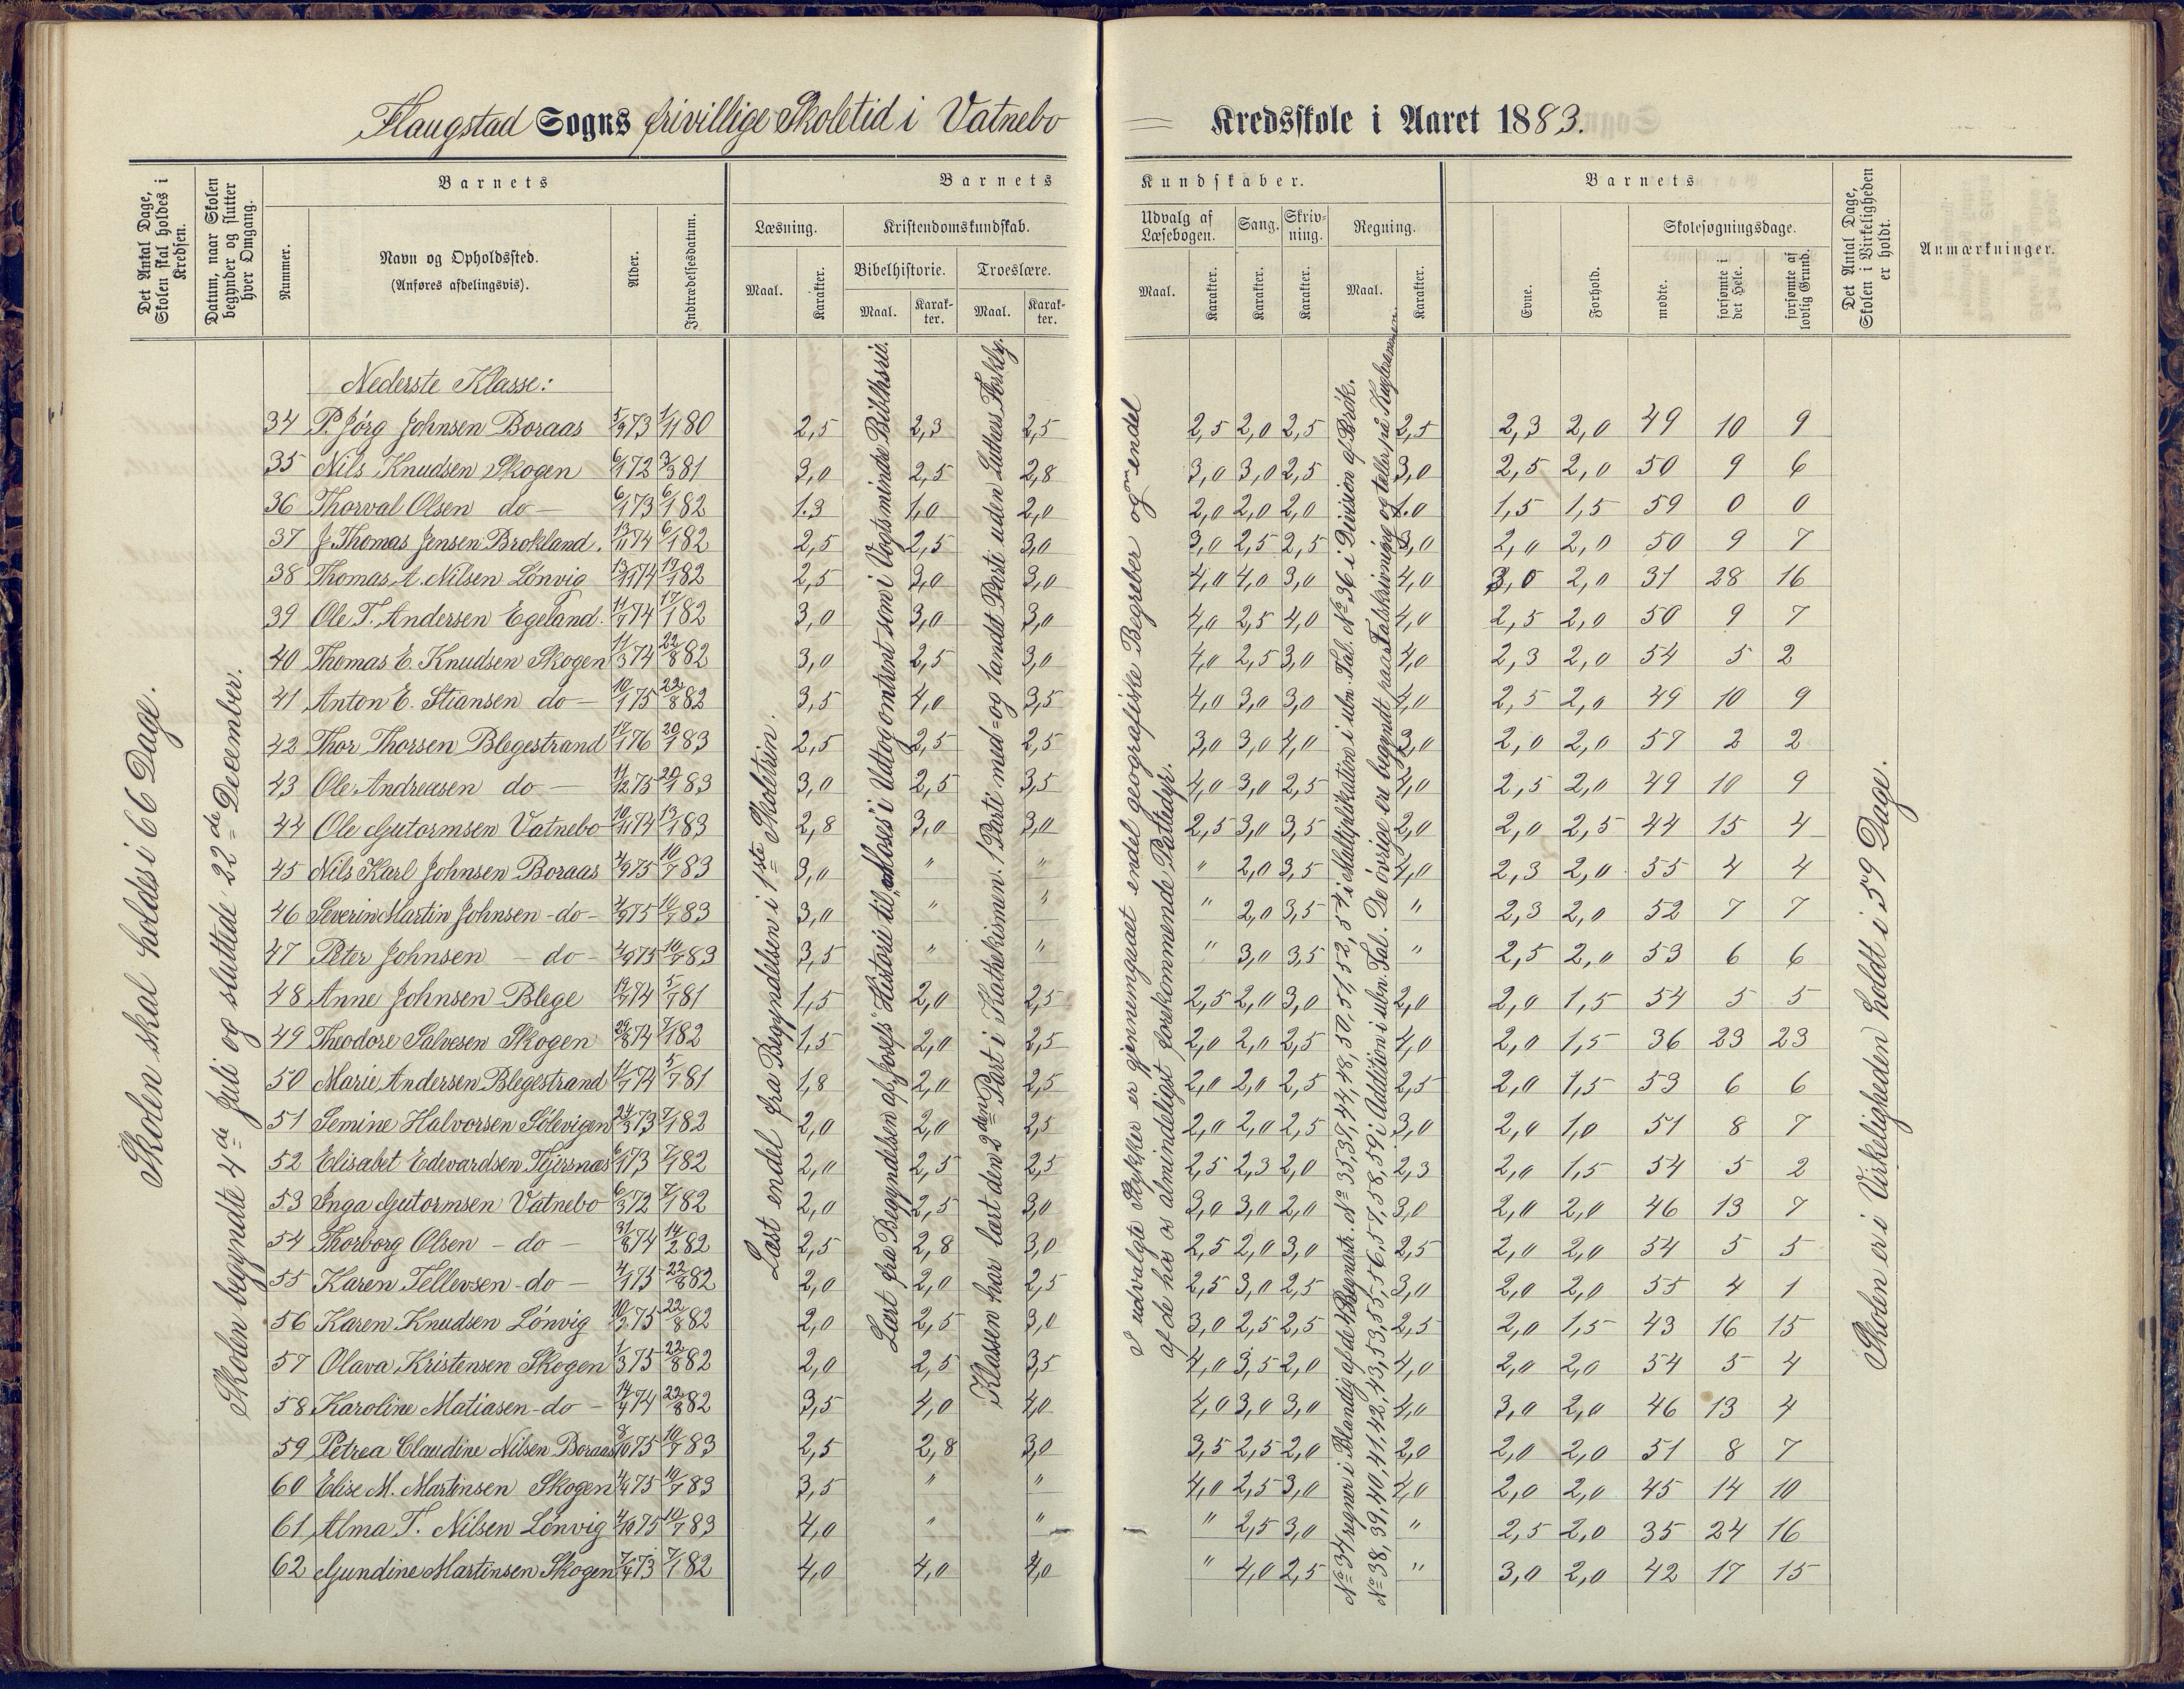 Flaugstad Sogns frivillige Skoletid i Vatnebo Kredsskole i Aaret 1883.
Det Antal Dage, Skolen skal holdes i Kredsen.
Datum, naar Skolen begynder og slutter hver Omgang.
Barnets
Nummer.
Navn og Opholdssted. (Anføres afdelingsvis).
Alder.
Indtrædelsesdatum.
Barnets Kundskaber.
Læsning.
Maal.
Karakter.
Kristendomskundskab.
Bibelhistorie.
Maal.
Karakter.
Troeslære.
Maal.
Karakter.
Udvalg af Læsebogen.
Maal.
Karakter.
Sang.
Karakter.
Skrivning.
Karakter.
Regning.
Maal.
Karakter.
Barnets
Evne.
Forhold.
Skolesøgningsdage.
mødte.
forsømte i det Hele.
forsømte af lovlig Grund.
Det Antal Dage, Skolen i Virkeligheden er holdt.
Anmærkninger.
Skolen skal holdes i 66 Dage.
Skolen begyndte 4de Juli og sluttede 22de December.
Læst endel fra Begyndelsen i 1ste Skoletrin.
Lært fra Begyndelsen af Josefs Historie til "Moses" i Udtog omtrent som i Vogts mindre Bibelhistorie.
Klassen har lært den 2den Part i Kathekismen. 1 Parti med- og 1 andet Parti uden Luthers Forklg.
I udvalgte Stykker er gjennemgaaet endel geografiske Begreber og om endel
af de hos os almindeligst forekommende Pattedyr.
No 34 regner i Blandig af de 4 Regnarter. No 35, 37, 44, 48, 50, 51, 52, 54 i Multiplikation i ubn. Tal. No 36 i Division af Brøk.
No 38, 39, 40, 41, 42, 43, 53, 55, 56, 57, 58, 59 i Addition i ubn. Tal. De øvrige ere begyndt paa Talskrivning og tæller på Kuglerammen.
Skolen er i Virkeligheden holdt i 59 Dage.
Nederste Klasse:
34 P. Jørg Johnsen Boraas 5/9 73 1/11 80 2,5 2,3 2,5 2,5 2,0 2,5 2,5 2,3 2,0 49 10 9
35 Nils Knudsen Skogen 6/1 72 3/3 81 3,0 2,5 2,8 3,0 3,0 2,5 3,0 2,5 2,0 50 9 6
36 Thorval Olsen do — 6/1 73 6/1 82 1.3 1,0 2,0 2,0 2,0 2,0 1.0 1,5 1,5 59 0 0
37 J. Thomas Jensen Brokland. 13/11 74 6/1 82 2,5 2,5 3,0 3,0 2,5 2,5 3,0 2,0 2,0 50 9 7
38 Thomas A. Nilsen Lønvig 13/11 74 17/1 82 2,5 3,0 3,0 4,0 4,0 3,0 4,0 3,0 2,0 31 28 16
39 Ole T. Andersen Egeland. 11/7 74 17/1 82 3,0 3,0 3,0 4,0 2,5 4,0 4,0 2,5 2,0 50 9 7
40 Thomas E. Knudsen Skogen 11/3 74 22/8 82 3,0 2,5 3,0 4,0 2,5 3,0 4,0 2,3 2,0 54 5 2
41 Anton E. Stiansen do — 10/1 75 22/8 82 3,5 4,0 3,5 4,0 3,0 3,0 4,0 2,5 2,0 49 10 9
42 Thor Thorsen Blegestrand 17/1 76 20/1 83 2,5 2,5 2,5 3,0 3,0 4,0 3,0 2,0 2,0 57 2 2
43 Ole Andreasen do — 11/12 75 20/1 83 3,0 2,5 3,5 4,0 3,0 2,5 4,0 2,5 2,0 49 10 9
44 Ole Gutormsen Vatnebo 10/11 74 13/1 83 2,8 3,0 3,0 2,5 3,0 3,5 2,0 2,0 2,5 44 15 4
45 Nils Karl Johnsen Boraas 4/9 75 10/7 83 3,0 " " " 2,0 3,5 4,0 2,3 2,0 55 4 4
46 Severin Martin Johnsen - do - 4/9 75 10/7 83 3,0 " " " 2,0 3,5 " 2,3 2,0 52 7 7
47 Peter Johnsen — do - 4/9 75 10/7 83 3,5 " " " 3,0 3,5 " 2,5 2,0 53 6 6
48 Anne Johnsen Blege 19/7 74 5/7 81 1,5 2,0 2,5 2,5 2,0 3,0 2,0 2,0 1,5 54 5 5
49 Theodore Salvesen Skogen 29/8 74 7/1 82 1,5 2,0 2,5 2,0 2,0 2,5 4,0 2,0 1,5 36 23 23
50 Marie Andersen Blegestrand 11/7 74 5/7 81 1,8 2,0 2,5 2,0 2,0 2,5 2,5 2,0 1,5 53 6 6
51 Semine Halvorsen Sølevigen 24/3 73 7/1 82 2,0 2,0 2,5 2,0 2,0 2,5 3,0 2,0 1,0 51 8 7
52 Elisabet Edevardsen Tjürsnæs 6/1 73 7/1 82 2,0 2,5 2,5 2,5 2,3 2,0 2,3 2,0 1,5 54 5 2
53 Inga Gutormsen Vatnebo 6/3 72 7/1 82 2,0 2,5 3,0 3,0 3,0 2,0 3,0 2,0 2,0 46 13 7
54 Thorborg Olsen — do — 31/8 74 14/2 82 2,5 2,8 3,0 2,5 2,0 3,0 2,5 2,0 2,0 54 5 5
55 Karen Tellevsen - do — 4/1 75 22/8 82 2,0 2,0 2,5 2,5 3,0 2,5 3,0 2,0 2,0 55 4 1
56 Karen Knudsen Lønvig 10/2 75 22/8 82 2,0 2,5 3,0 3,0 2,5 2,5 2,5 2,0 1,5 43 16 15
57 Olava Kristensen Skogen 1/3 75 22/8 82 2,0 2,5 3,5 4,0 3,5 2,0 4,0 2,0 2,0 54 5 4
58 Karoline Matiasen - do — 14/4 74 22/8 82 3,5 4,0 4,0 4,0 3,0 3,0 4,0 3,0 2,0 46 13 4
59 Petrea Claudine Nilsen Boraas 8/10 75 10/7 83 2,5 2,8 3,0 3,5 2,5 2,0 2,0 2,0 2,0 51 8 7
60 Elise M. Martinsen Skogen 4/4 75 10/7 83 3,5 " " 4,0 2,5 3,0 4,0 2,0 2,0 45 14 10
61 Alma T. Nilsen Lønvig 4/10 75 10/7 83 4,0 " " " 2,5 3,0 " 2,5 2,0 35 24 16
62 Gundine Martinsen Skogen 7/4 73 7/1 82 4,0 4,0 4,0 " 4,0 2,5 " 3,0 2,0 42 17 15